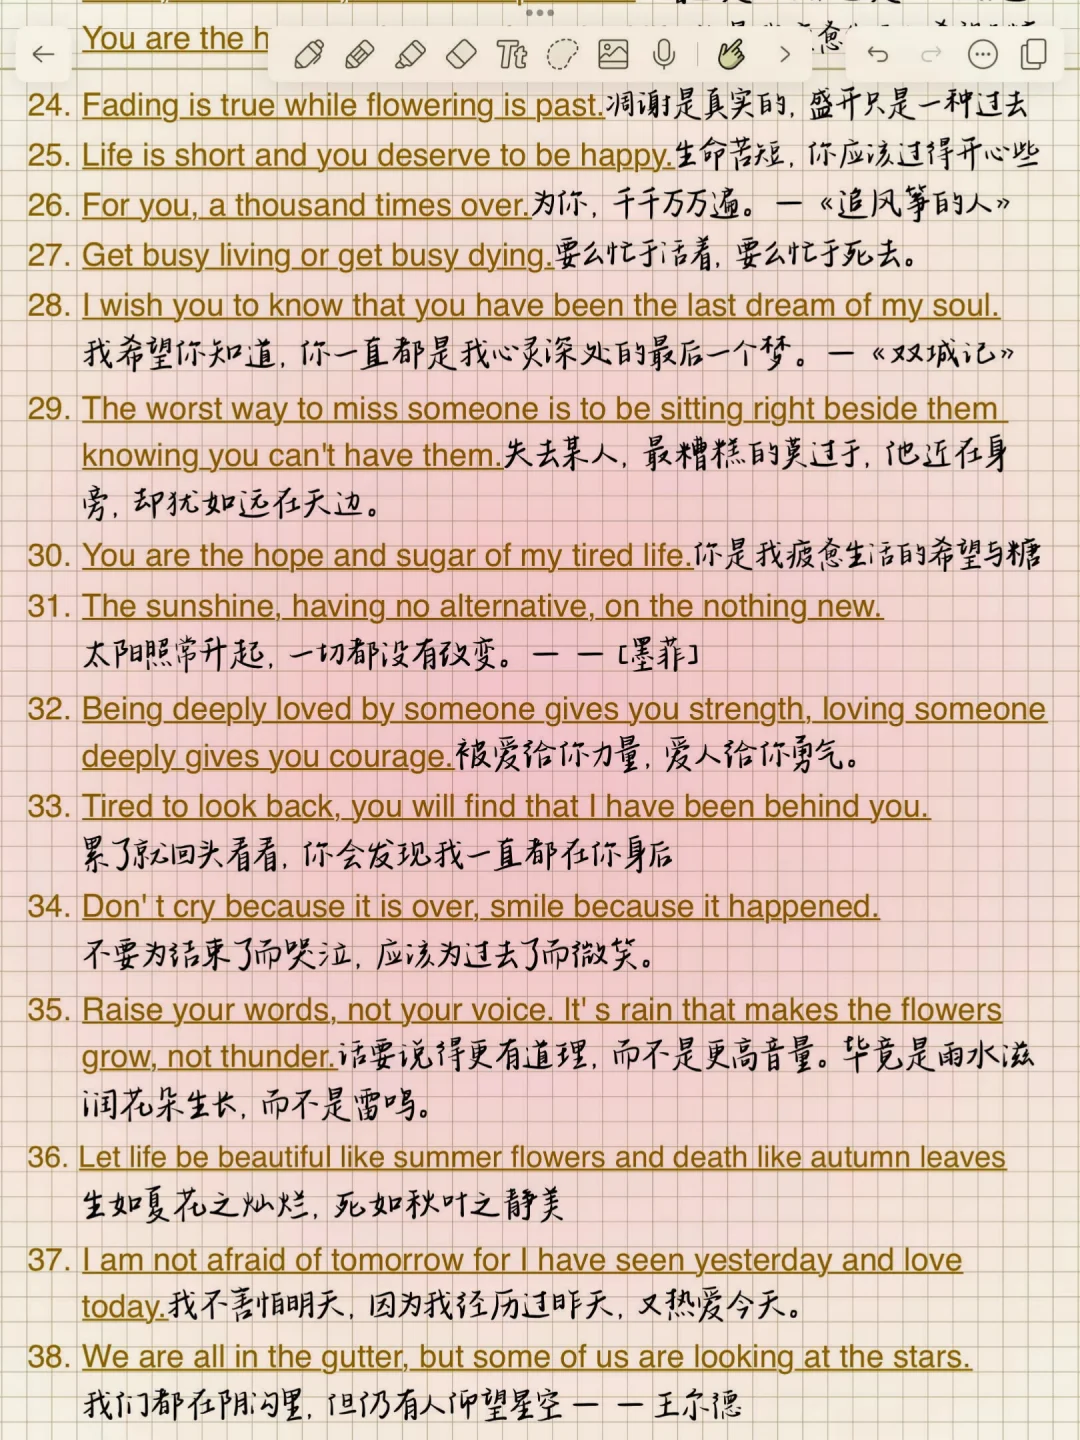 You are the h
24. Fading is true while flowering is past.凋谢是真实的, 盛开只是一种过去
25. Life is short and you deserve to be happy.生命苦短, 你应该过得开心些
26. For you, a thousand times over.为你, 千千万万遍。 — 《追风筝的人》
27. Get busy living or get busy dying.要么忙于活着, 要么忙于死去。
28. I wish you to know that you have been the last dream of my soul.
我希望你知道, 你一直都是我心灵深处的最后一个梦。 — 《双城记》
29. The worst way to miss someone is to be sitting right beside them
knowing you can't have them.失去某人, 最糟糕的莫过于, 他近在身
旁, 却犹如远在天边。
30. You are the hope and sugar of my tired life.你是我疲惫生活的希望与糖
31. The sunshine, having no alternative, on the nothing new.
太阳照常升起, 一切都没有改变。 — — [墨菲]
32. Being deeply loved by someone gives you strength, loving someone
deeply gives you courage.被爱给你力量, 爱人给你勇气。
33. Tired to look back, you will find that I have been behind you.
累了就回头看看, 你会发现我一直都在你身后
34. Don' t cry because it is over, smile because it happened.
不要为结束了而哭泣, 应该为过去了而微笑。
35. Raise your words, not your voice. It' s rain that makes the flowers
grow, not thunder.话要说得更有道理, 而不是更高音量。毕竟是雨水滋
润花朵生长, 而不是雷鸣。
36. Let life be beautiful like summer flowers and death like autumn leaves
生如夏花之灿烂, 死如秋叶之静美
37. I am not afraid of tomorrow for I have seen yesterday and love
today.我不害怕明天, 因为我经历过昨天, 又热爱今天。
38. We are all in the gutter, but some of us are looking at the stars.
我们都在阴沟里, 但仍有人仰望星空 — — 王尔德